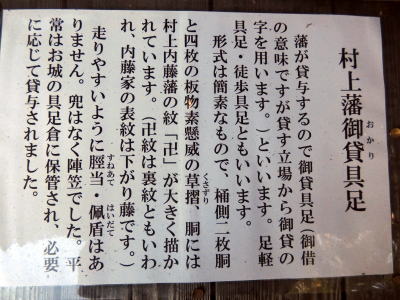 村上藩御貸具足
おかり
藩が貸与するので御貸具足(御借
の意味ですが貸す立場から御貸の
字を用います。)といいます。足軽
具足・徒歩具足ともいいます。
形式は簡素なもので、桶側二枚胴
と四枚の板物素懸威の草摺、胴には
くさずり
村上内藤藩の紋「卍」が大きく描か
れています。(卍紋は裏紋ともいわ
れ、内藤家の表紋は下がり藤です。)
走りやすいように脛当・佩盾はあ
すねあて はいだて
りません。兜はなく陣笠でした。平
常はお城の具足倉に保管され、必要
に応じて貸与されました。